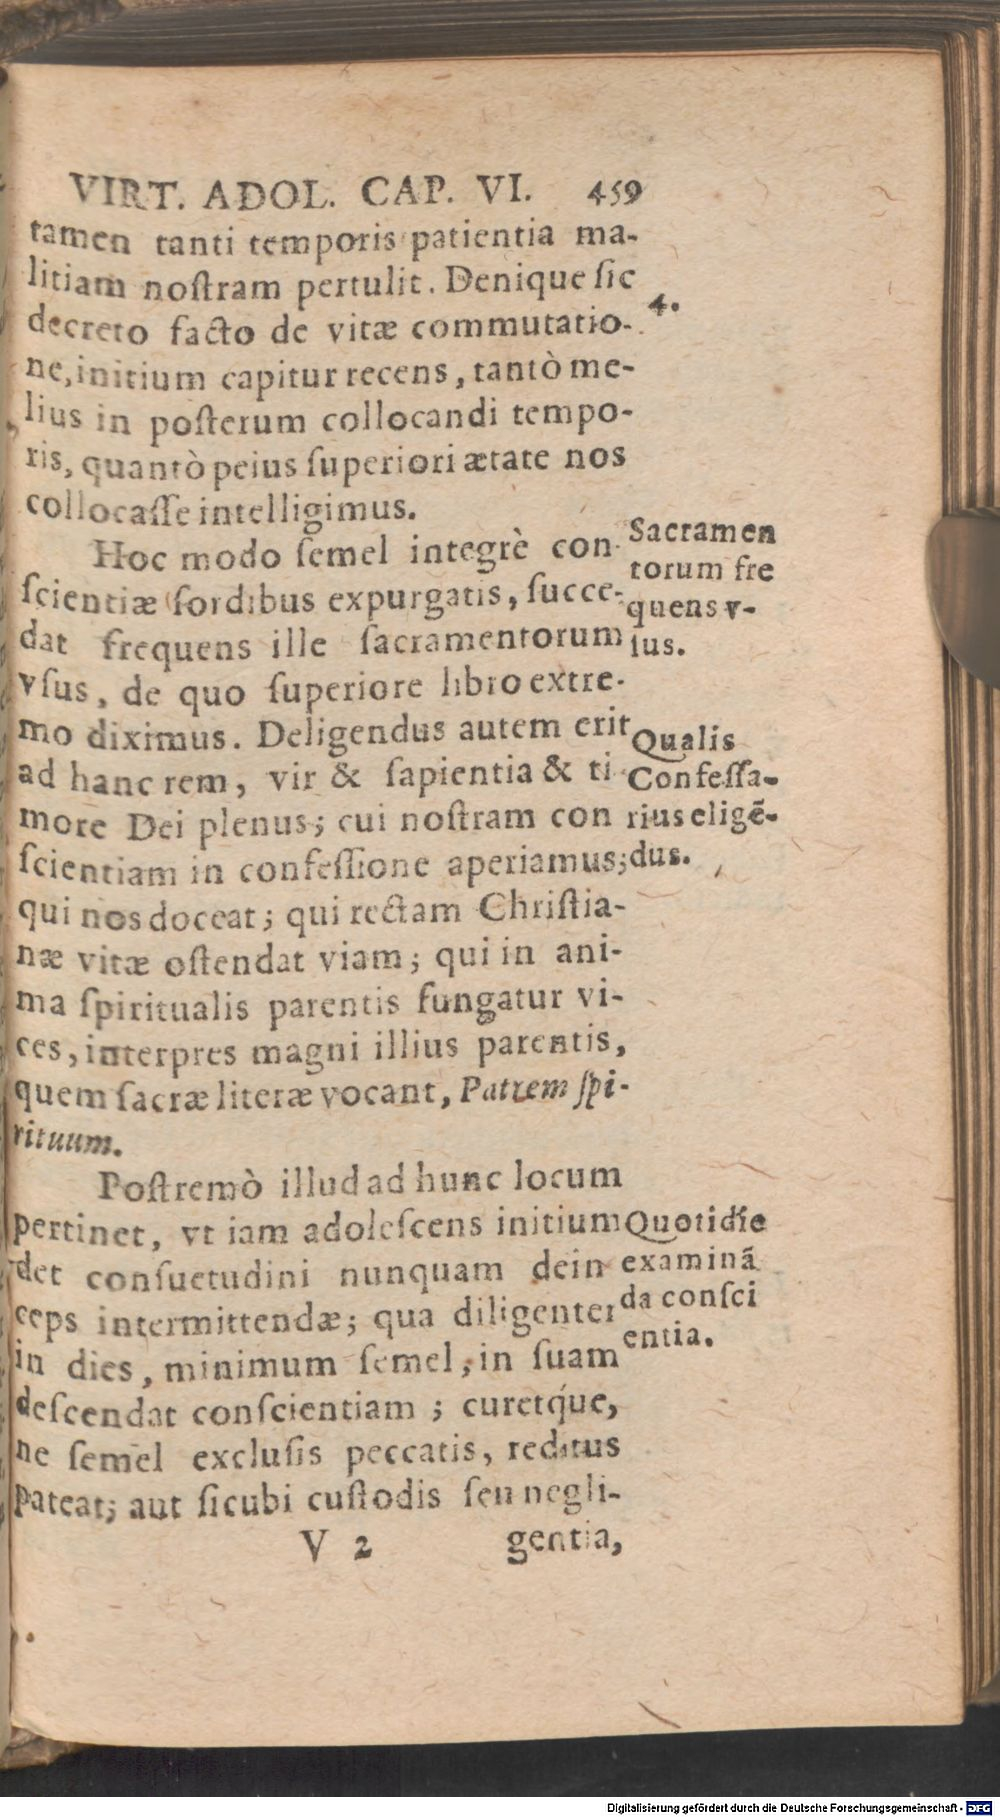 VIRT. ADOL. CAP. VI. 459
tamen tanti temporis patientia ma-
litiam noſtram pertulit. Denique ſic
4.
decreto facto de vitæ commutatio-
ne, initium capitur recens, tantò me-
lius in poſterum collocandi tempo-
ris, quantò peius ſuperiori ætate nos
collocaſſe intelligimus.
Hoc modo ſemel integrè con-
ſcientiæ ſordibus expurgatis, ſucce-
dat frequens ille ſacramentorum
vſus, de quo ſuperiore libro extre-
mo diximus. Deligendus autem erit
ad hanc rem, vir & ſapientia & ti
more Dei plenus; cui noſtram con
ſcientiam in confeſſione aperiamus;
qui nos doceat; qui rectam Chriſtia-
næ vitæ oſtendat viam; qui in ani-
ma ſpiritualis parentis fungatur vi-
ces, interpres magni illius parentis,
quem ſacræ literæ vocant, Patrem ſpi-
rituum.
Poſtremò illud ad hunc locum
pertinet, vt iam adoleſcens initium
det conſuetudini nunquam dein
ceps intermittendæ; qua diligenter
in dies, minimum ſemel, in ſuam
deſcendat conſcientiam; curetq́ue,
ne ſemel excluſis peccatis, reditus
pateat; aut ſicubi cuſtodis ſeu negli-
V 2 gentia,
Sacramen
torum fre
quens v-
ſus.
Qualis
Confeſſa-
rius eligẽ-
dus.
Quotidie
examinã
da conſci
entia.
Digitalisierung gefördert durch die Deutsche Forschungsgemeinschaft - DFG